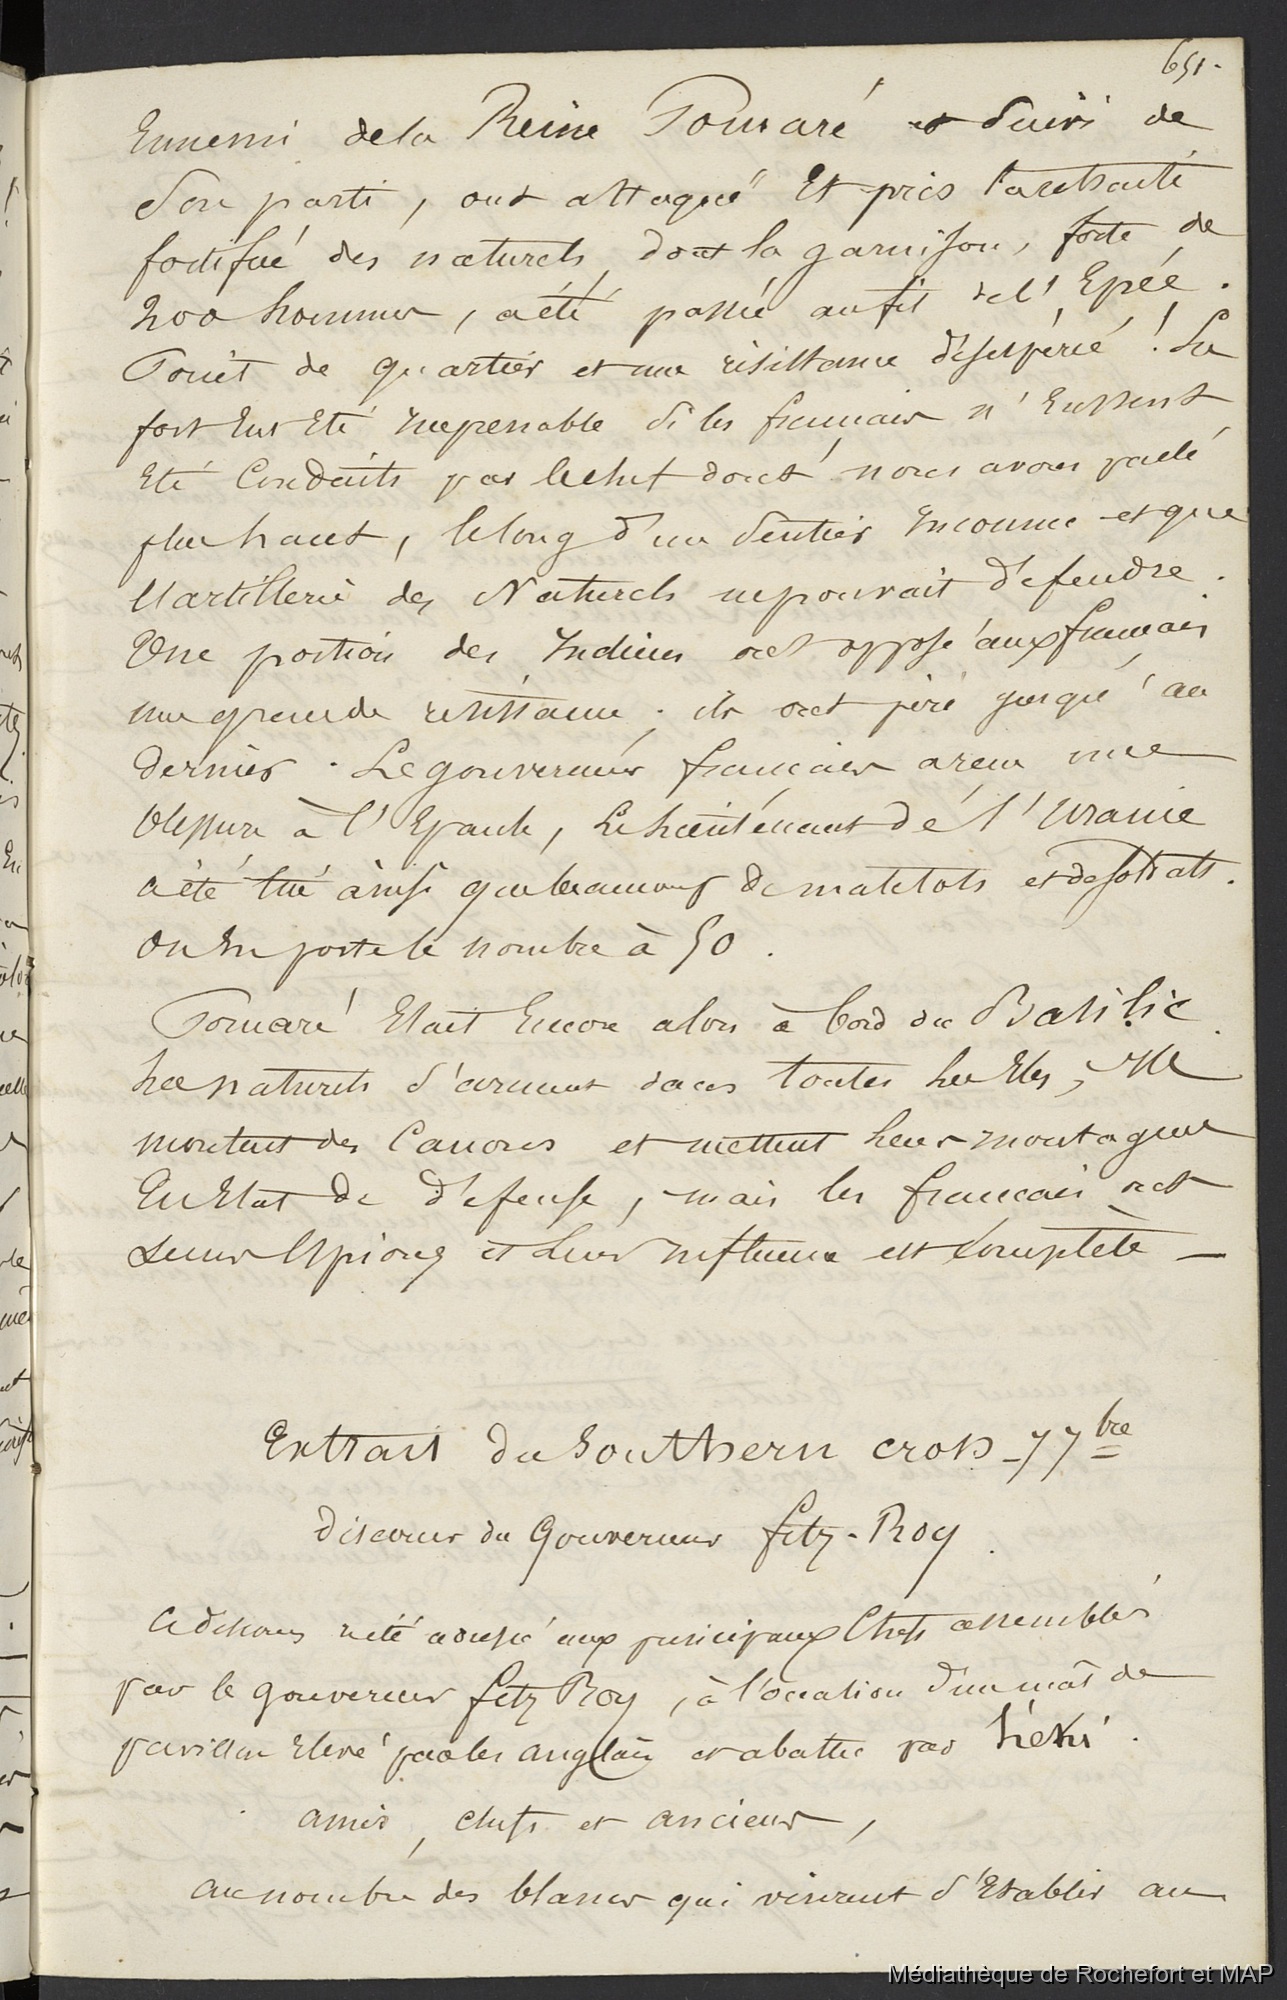 651.
Ennemi de la Reine Pomaré et suivi de
son parti, ont attaqué Et pris la retraite
fortifiée des naturels, dont la garnison, forte de
200 hommes, a été passée au fil de l'Epée.
Point de quartier et une résistance désespérée ! Le
fort Eut Eté imprenable si les français n'Eussent
Eté Conduits par le chef dont nous avons parlé
plus haut, le long d'un sentier Inconnu et que
l'artillerie des Naturels ne pouvait défendre.
Une portion des Indiens ont opposé aux français
une grande résistance ; ils ont péri jusqu'au
dernier. Le gouverneur français a reçu une
blessure à l'Epaule, Le lieutenant de l'Uranie
a été tué ainsi que beaucoup de matelots et de soldats.
On En porte le nombre à 50.
Pomaré Etait Encore alors à bord du Basilic.
Les naturels s'arment dans toutes les Iles, Ils
montent des Canons et mettent leurs montagnes
En Etat de défense, mais les francais ont
Leurs Espions et Leur Influence est Complète —
Extrait du Southern cross - 7 7bre
Discours du Gouverneur Fitz-Roy.
Ce discours a été adressé aux principaux Chefs assemblés
par le gouverneur Fitz Roy, à l'occasion d'un mât de
pavillon Elevé par les anglais et abattu par Héki.
amis, chefs et anciens,
au nombre des blancs qui vinrent s'Etablir au
Médiathèque de Rochefort et MAP